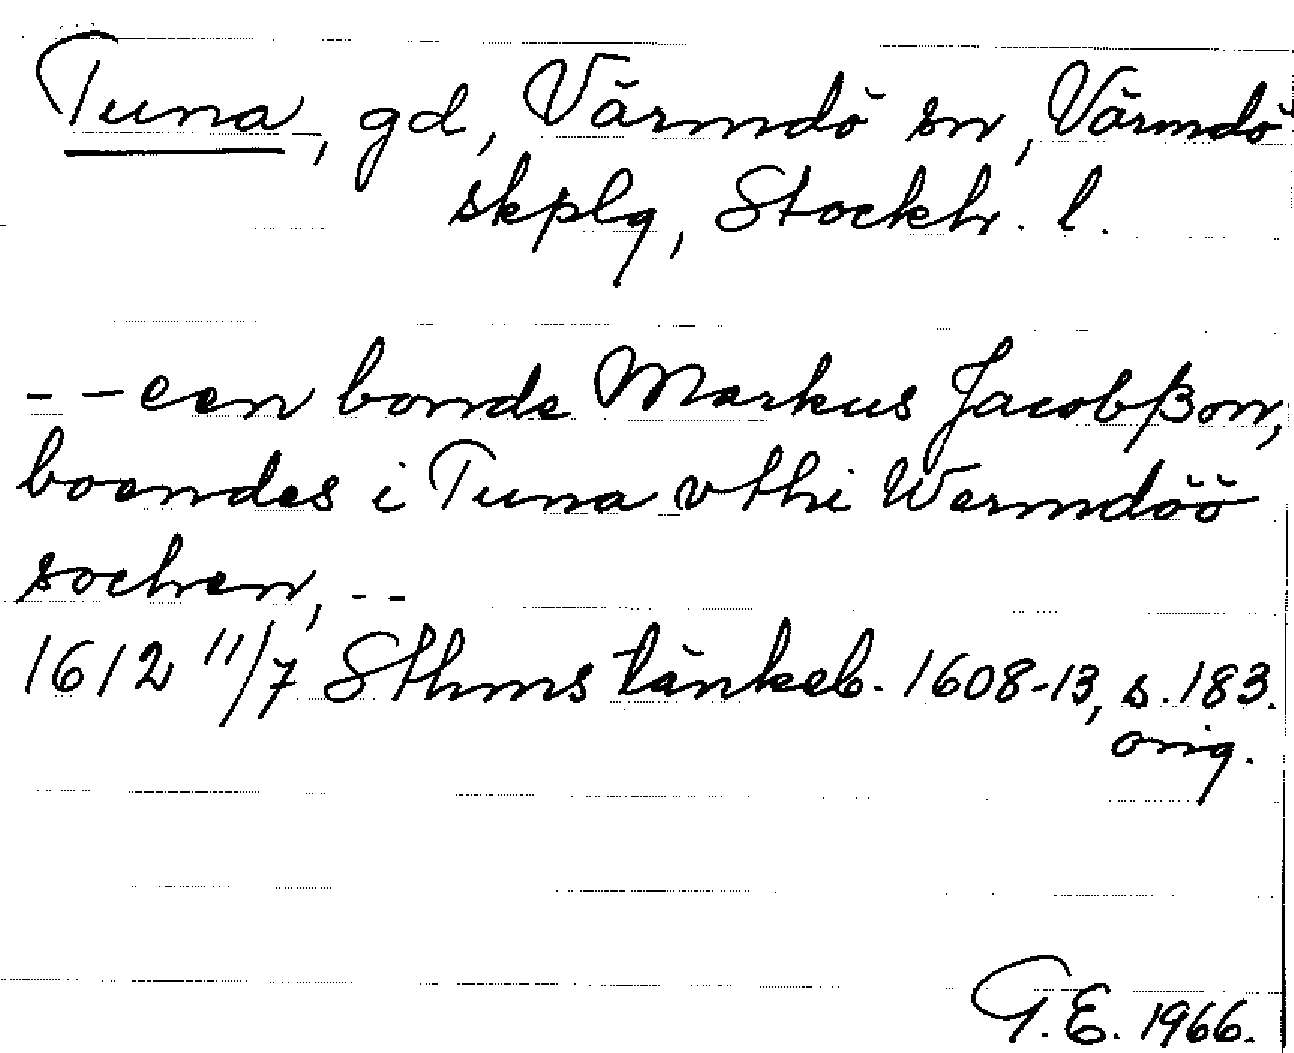 Tuna, gd, Värmdö sn, Värmdö
skplg, Stockh. l.
- - een bonde Markus Jacobßon,
boendes i Tuna vthi Wermdöö
sochen, - -
1612 11/7 Sthms tänkeb. 1608-13, s. 183.
orig.
G. E. 1966.